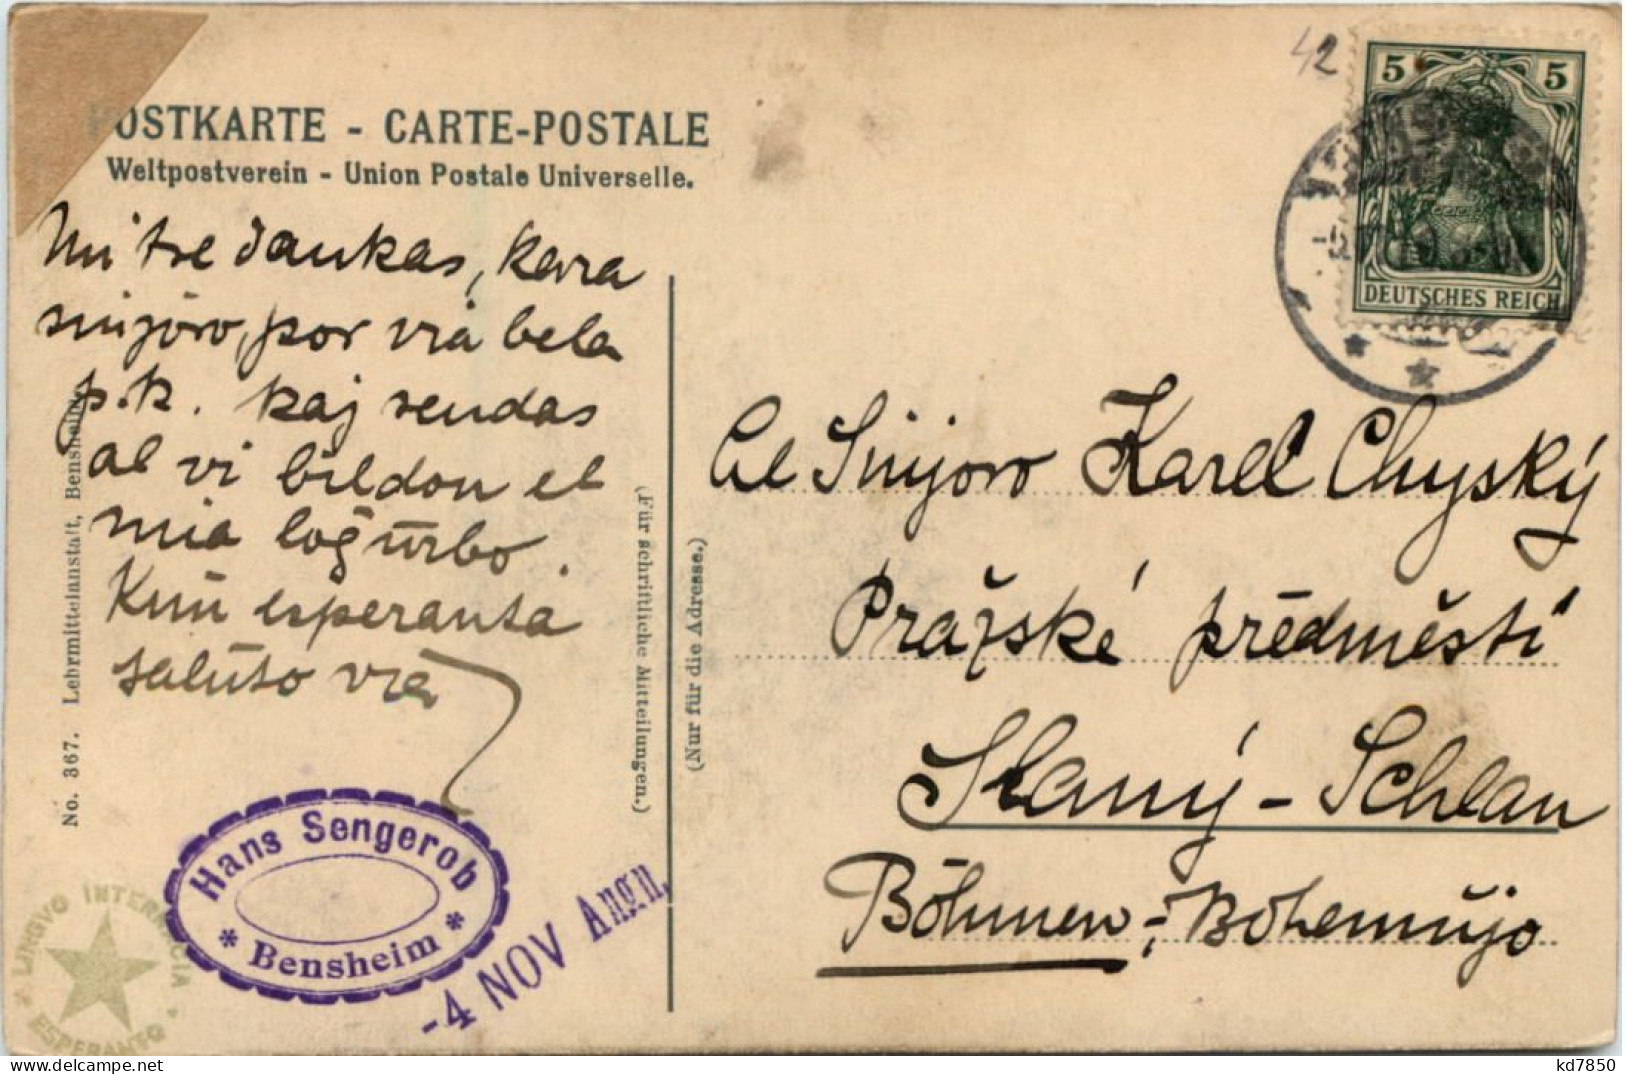 42
5 5
DEUTSCHES REICH
POSTKARTE - CARTE-POSTALE
Weltpostverein - Union Postale Universelle.
Mi tre dankas, kara
sinjoro, por via bela
p.k. kaj sendas
al vi bildon el
mia loĝurbo.
Kun esperanta
saluto via
Al Sinjoro Karel Chyský
Pražské předměstí
Slaný - Schlan
Böhmen - Bohemujo
(Für schriftliche Mitteilungen.)
(Nur für die Adresse.)
No. 367. Lehrmittelanstalt, Bensheim
Hans Sengerob
* Bensheim *
-4 NOV Angn.
LINGVO INTERNACIA
ESPERANTO
kd7850